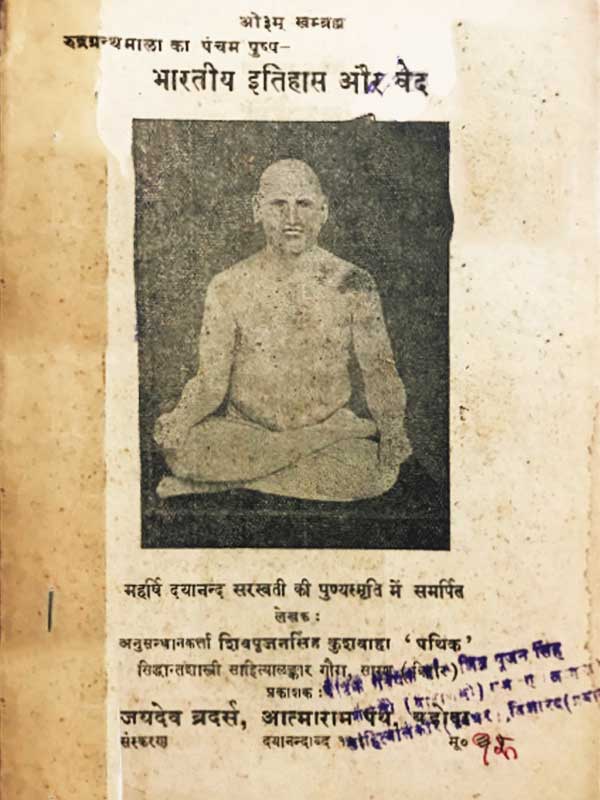 ओ३म् खम्ब्रह्म
रुद्रग्रन्थमाला का पंचम पुष्प-
भारतीय इतिहास और वेद
महर्षि दयानन्द सरस्वती की पुण्यस्मृति में समर्पित
लेखक :
अनुसन्धानकर्त्ता शिवपूजनसिंह कुशवाहा 'पथिक'
सिद्धान्तशास्त्री साहित्यालङ्कार गौरा, सारण
पूजन सिंह
प्रकाशक :
जयदेव ब्रदर्स, आत्माराम पथ, बड़ोदा
संस्करण दयानन्दाब्द मू०